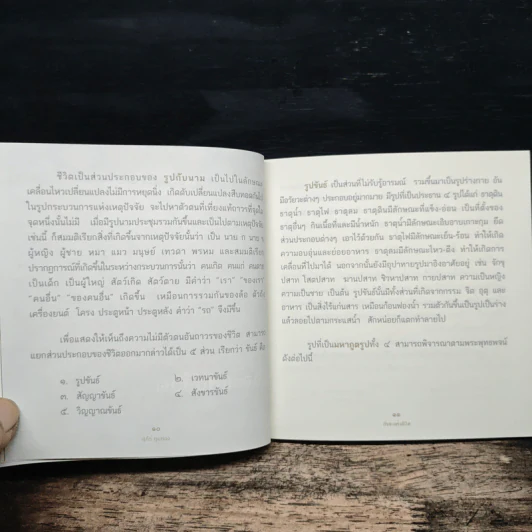 ชีวิตเป็นส่วนประกอบของ รูปกับนาม เป็นไปในลักษณะ
เคลื่อนไหวเปลี่ยนแปลงไม่มีการหยุดนิ่ง เกิดดับเปลี่ยนแปลงสืบทอดกันไป
ในรูปกระบวนการแห่งเหตุปัจจัย จะไปหาตัวตนที่เที่ยงแท้ถาวรที่จุดใด
จุดหนึ่งนั้นไม่มี เมื่อมีรูปนามประชุมรวมกันขึ้นและเป็นไปตามเหตุปัจจัย
เช่นนี้ ก็สมมติเรียกสิ่งที่เกิดขึ้นจากเหตุปัจจัยนั้นว่า เป็น นาย ก นาง
ผู้หญิง ผู้ชาย หมา แมว มนุษย์ เทวดา พรหม และสมมติเรียก
ปรากฏการณ์ที่เกิดขึ้นในระหว่างกระบวนการนั้นว่า คนเกิด คนแก่ คนตาย
เป็นเด็ก เป็นผู้ใหญ่ สัตว์เกิด สัตว์ตาย มีคำว่า "เรา" "ของเรา"
"คนอื่น" "ของคนอื่น" เกิดขึ้น เหมือนการรวมกันของล้อ ตัวถัง
เครื่องยนต์ โครง ประตูหน้า ประตูหลัง คำว่า "รถ" จึงมีขึ้น
เพื่อแสดงให้เห็นถึงความไม่มีตัวตนอันถาวรของชีวิต สามารถ
แยกส่วนประกอบของชีวิตออกมากล่าวได้เป็น ๕ ส่วน เรียกว่า ขันธ์ คือ
๑. รูปขันธ์ ๒. เวทนาขันธ์
๓. สัญญาขันธ์ ๔. สังขารขันธ์
๕. วิญญาณขันธ์
๑๐
รูปขันธ์ เป็นส่วนที่ไม่รับรู้อารมณ์ รวมขึ้นมาเป็นรูปร่างกาย อัน
มีอวัยวะต่างๆ ประกอบอยู่มากมาย มีรูปที่เป็นประธาน ๔ รูปได้แก่ ธาตุดิน
ธาตุน้ำ ธาตุไฟ ธาตุลม ธาตุดินมีลักษณะที่แข็ง-อ่อน เป็นที่ตั้งของ
ธาตุอื่นๆ กินเนื้อที่และมีน้ำหนัก ธาตุน้ำมีลักษณะเอิบอาบเกาะกุม ยึด
ส่วนประกอบต่างๆ เอาไว้ด้วยกัน ธาตุไฟมีลักษณะเย็น-ร้อน ทำให้เกิด
ความอบอุ่นและย่อยอาหาร ธาตุลมมีลักษณะไหว-ตึง ทำให้เกิดการ
เคลื่อนที่ไปมาได้ นอกจากนั้นยังมีอุปาทายรูปมาอิงอาศัยอยู่ เช่น จักขุ
ปสาท โสตปสาท ฆานปสาท ชิวหาปสาท กายปสาท ความเป็นหญิง
ความเป็นชาย เป็นต้น รูปขันธ์นี้มีทั้งส่วนที่เกิดจากกรรม จิต อุตุ และ
อาหาร เป็นสิ่งไร้แก่นสาร เหมือนก้อนฟองน้ำ รวมตัวกันขึ้นเป็นรูปเป็นร่าง
แล้วลอยไปตามกระแสน้ำ สักหน่อยก็แตกทำลายไป
รูปที่เป็นมหาภูตรูปทั้ง ๔ สามารถพิจารณาตามพระพุทธพจน์
ดังต่อไปนี้
๑๑